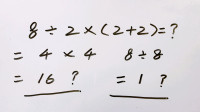 8 ÷ 2 × (2+2) = ?
= 4 × 4   8 ÷ 8
= 16 ?   = 1 ?